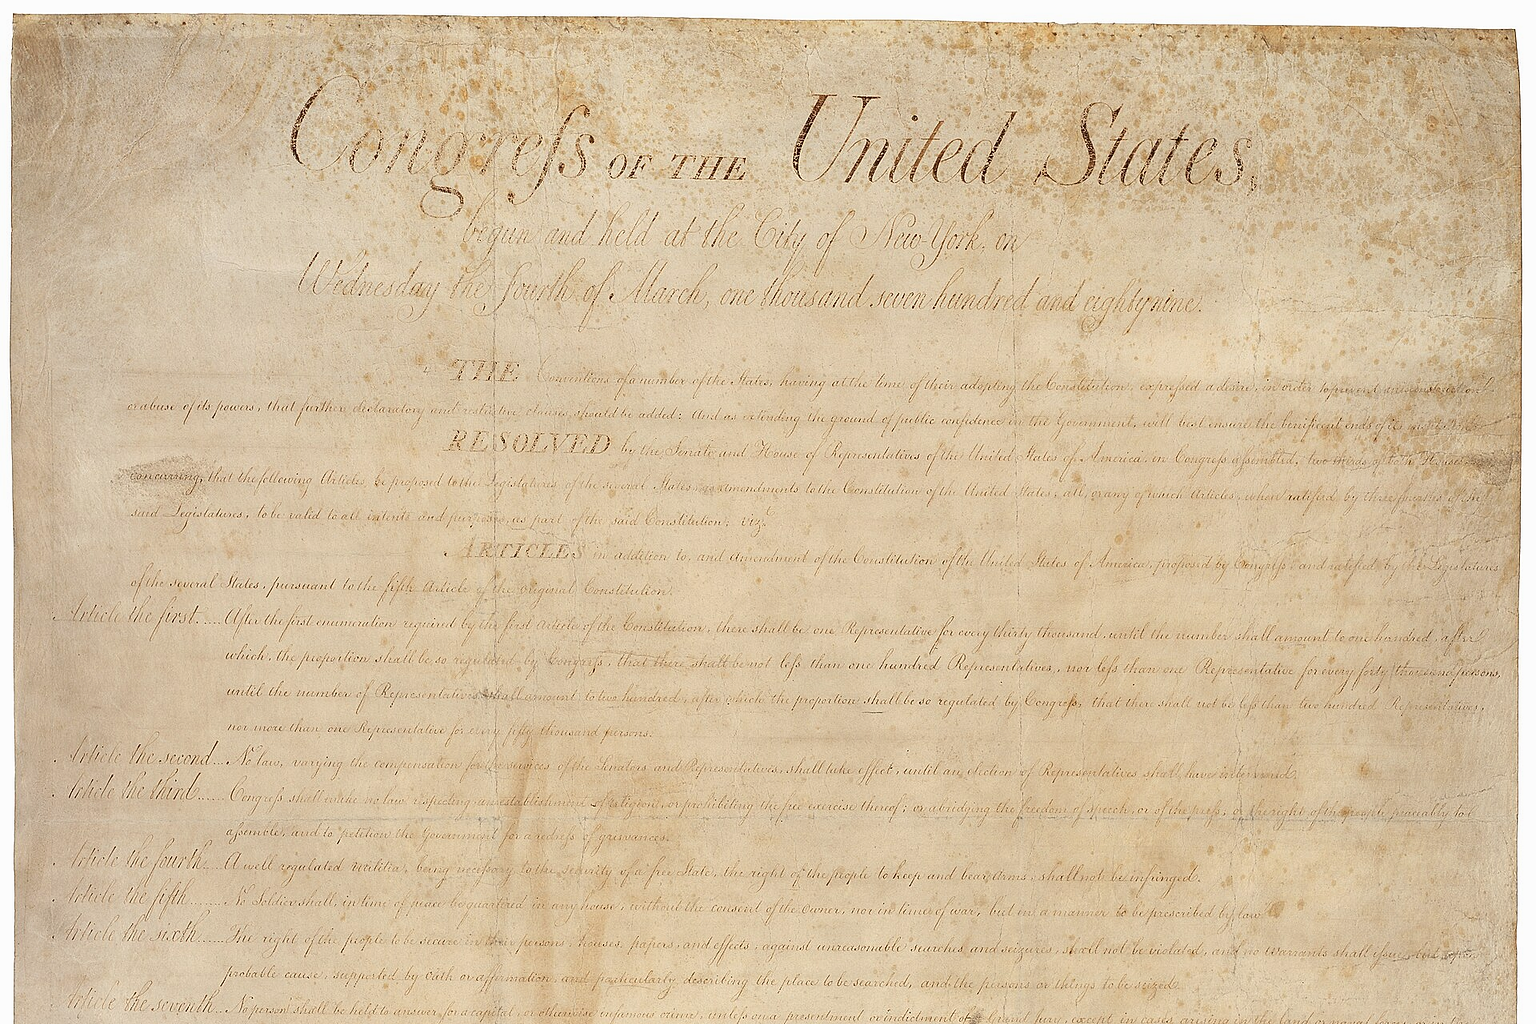 Congreſs OF THE United States,
begun and held at the City of New-York, on
Wednesday the fourth of March, one thousand seven hundred and eighty nine.
THE Conventions of a number of the States, having at the time of their adopting the Constitution, expressed a desire, in order to prevent misconstruction
or abuse of its powers, that further declaratory and restrictive clauses should be added: And as extending the ground of public confidence in the Government, will best ensure the benificent ends of its
RESOLVED by the Senate and House of Representatives of the United States of America, in Congreſs aſsembled, two thirds of both Houses
concurring, that the following Articles be proposed to the Legislatures of the several States, as amendments to the Constitution of the United States, all, or any of which Articles, when ratified by three fourths of the
said Legislatures, to be valid to all intents and purposes, as part of the said Constitution; viz.
ARTICLES in addition to, and amendment of the Constitution of the United States of America, proposed by Congreſs and ratified by the Legislatures
of the several States, pursuant to the fifth Article of the original Constitution.
Article the first..... After the first enumeration required by the first Article of the Constitution, there shall be one Representative for every thirty thousand, until the number shall amount to one hundred, after
which, the proportion shall be so regulated by Congreſs, that there shall be not leſs than one hundred Representatives, nor leſs than one Representative for every forty thousand persons,
until the number of Representatives shall amount to two hundred, after which the proportion shall be so regulated by Congreſs, that there shall not be leſs than two hundred Representatives,
nor more than one Representative for every fifty thousand persons.
Article the second... No law, varying the compensation for the services of the Senators and Representatives, shall take effect, until an election of Representatives shall have intervened.
Article the third...... Congreſs shall make no law respecting an establishment of religion, or prohibiting the free exercise thereof; or abridging the freedom of speech, or of the preſs, or the right of the people peaceably to
aſsemble, and to petition the Government for a redreſs of grievances.
Article the fourth... A well regulated Militia, being neceſsary to the security of a free State, the right of the people to keep and bear Arms, shall not be infringed.
Article the fifth...... No Soldier shall, in time of peace be quartered in any house, without the consent of the Owner, nor in time of war, but in a manner to be prescribed by law.
Article the sixth..... The right of the people to be secure in their persons, houses, papers, and effects, against unreasonable searches and seizures, shall not be violated, and no Warrants shall iſsue, but upon
probable cause, supported by Oath or affirmation, and particularly describing the place to be searched, and the persons or things to be seized.
Article the seventh... No person shall be held to answer for a capital, or otherwise infamous crime, unleſs on a presentment or indictment of a Grand jury, except in cases arising in the land or naval